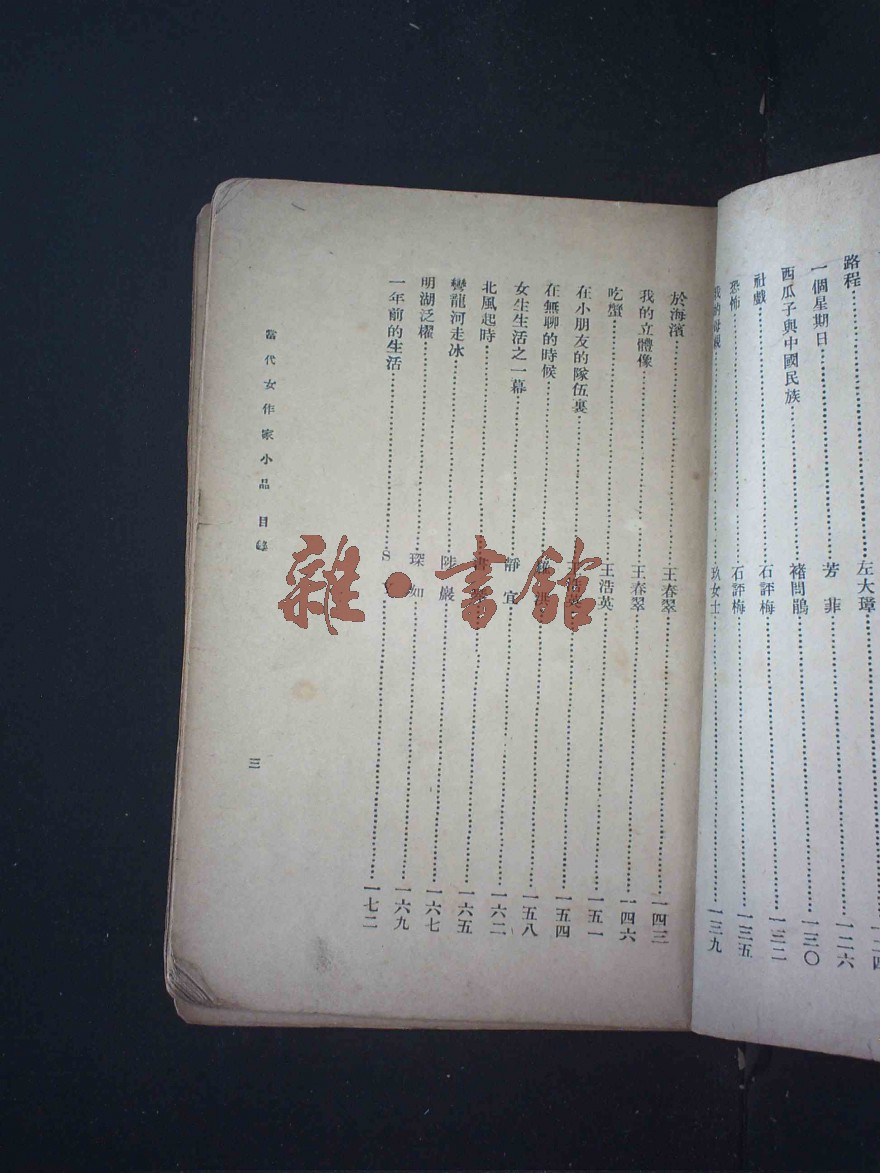 路程……左大璋……一二四
一個星期日……芳菲……一二六
西瓜子與中國民族……褚問鵑……一三〇
社戲……石評梅……一三二
恐怖……石評梅……一三五
我的母親……玖女士……一三九
於海濱……王春翠……一四三
我的立體像……王春翠……一四六
吃蟹……王浩英……一五一
在小朋友的隊伍裏……王浩英……一五四
在無聊的時候……一五八
女生生活之一幕……靜宜……一六二
北風起時……一六五
彎龍河走冰……陟巖……一六七
明湖泛櫂……琛如……一六九
一年前的生活……S……一七二
當代女作家小品 目錄
三
雜·書館